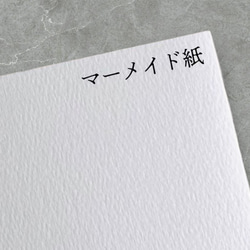 マーメイド紙